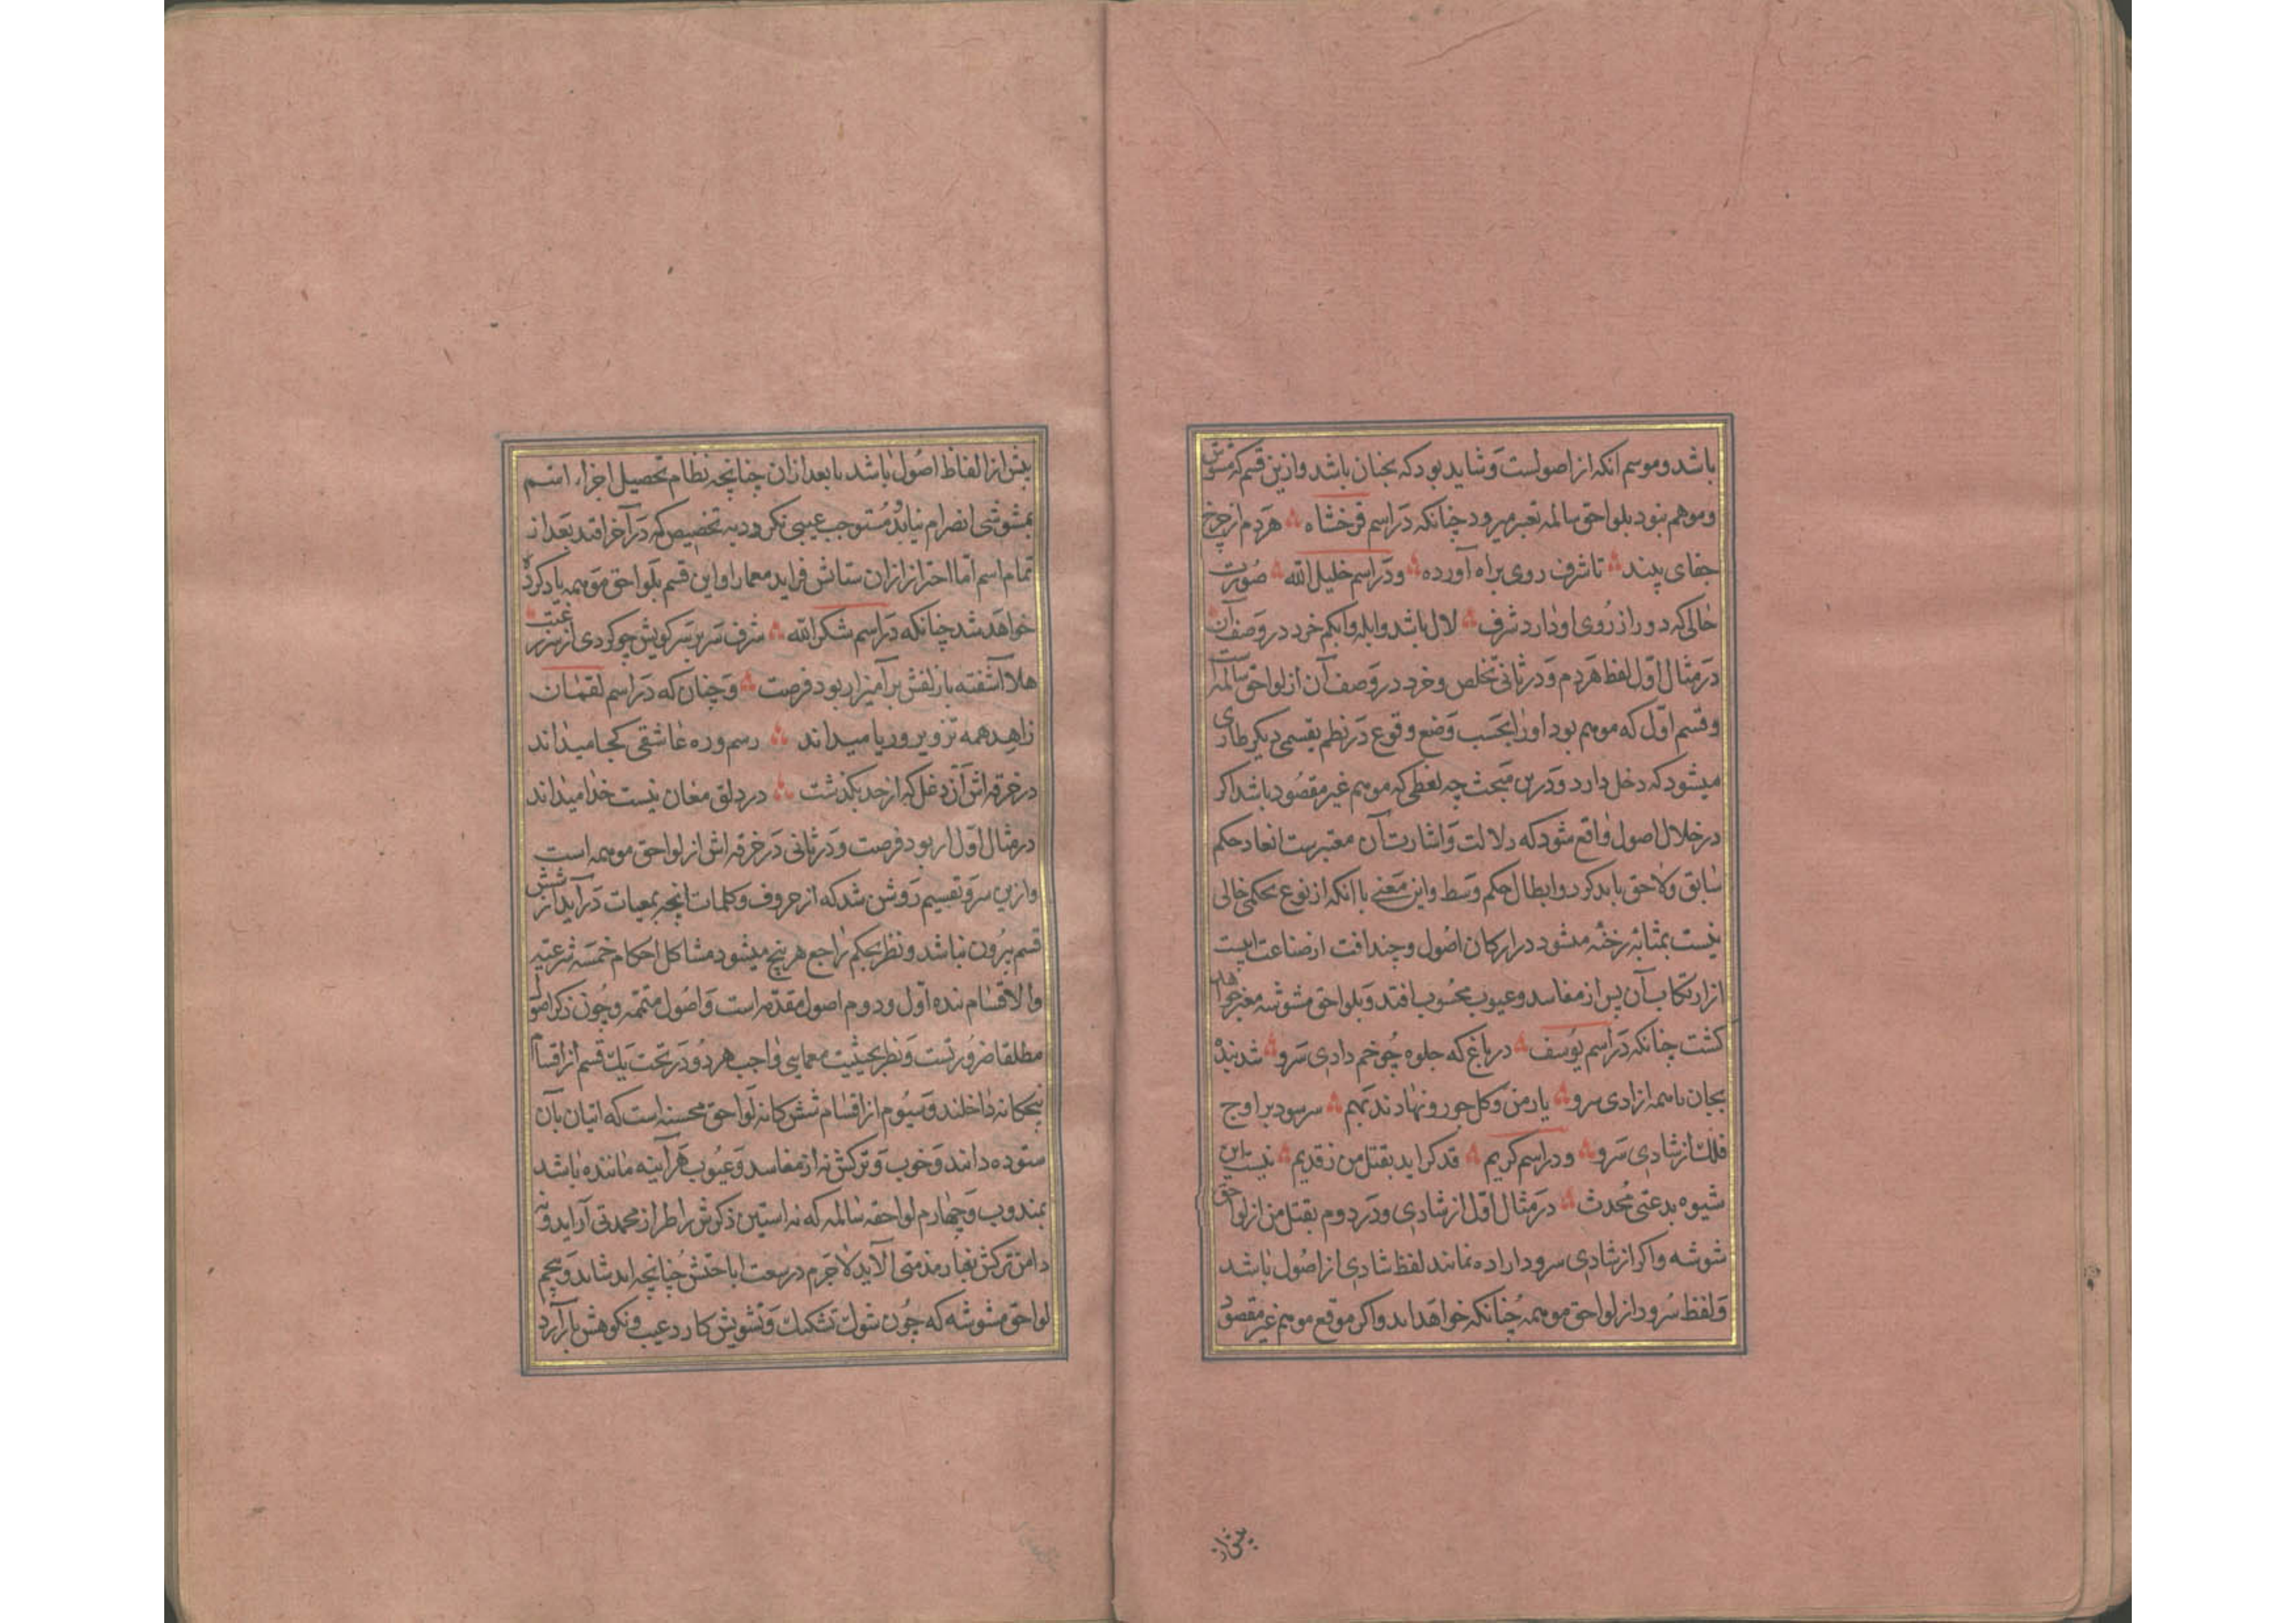 باشد و موسم انکه از اصولست و شاید بود که نچنان باشد و ازین قسم که مشوش
و موهم نبود بلواحق سالمه تعبیر میرود چنانکه در اسم فرخشاه هر دم از چرخ
جفای بیند تا شرف روی براه آورده و در اسم خلیل الله صورت
خالی که دور از روی او دارد شرف لال باشد و ابله و ابکم خرد در وصف آن
در مثال اول لفظ هر دم و در ثانی تخلص و خرد در وصف آن از لواحق سالمه است
و قسم اول که موهم بود او را بحسب وضع و وقوع در نظم بقسمی دیکر طاری
میشود که دخل دارد و درین مبحث چه لفظی که موهم غیر مقصود باشد اکر
در خلال اصول واقع شود که دلالت و اشارت آن معتبرست انعاد حکم
سابق و لاحق باید کرد و ابطال حکم وسط و این معنی با انکه از نوع تحکمی خالی
نیست بمثابه رخنه میشود در ارکان اصول و چند افت از صناعت است
از ارتکاب آن پس از مفاسد و عیوب محسوب افتد و بلواحق مشوشه معبر خواهد
کشت چنانکه در اسم یوسف در باغ که جلوه چو خم دادی سرو شد بنده
بجان با همه ازادی سرو یار من و کل جو رو نهادند بهم سر سود بر اوج
فلک از شادی سرو و در اسم کریم قد کراید بقتل من ز قدیم نیست این
شیوه بدعتی محدث در مثال اول از شادی و در دوم بقتل من از لواحق
شوشه و اکر از شادی سرود اراده نمانند لفظ شادی از اصول باشد
و لفظ سرود از لواحق موهمه چنانکه خواهد امد و اکر موقع موهم غیر مقصود
پیش از
پیش از الفاظ اصول باشد یا بعد از ان چنانچه نظام تحصیل اجزاء اسم
بمشوشی انصرام نیابد مستوجب عیبی نکردد به تخصیص که در آخر افتد بعد از
تمام اسم اما احتراز از ان ستایش فزاید معما را و این قسم بلواحق موهمه یاد کرده
خواهد شد چنانکه در اسم شکرالله شرف سر بر سر کویش چو کردی از سر رغبت
هلا آشفته با زلفش برآمیز ار بود فرصت و چنان که در اسم لقمان
زاهد همه تزویر و ریا میداند رسم و ره عاشقی کجا میداند
در خرقه اش آن دغل که از حد بکذشت در دلق مغان نیست خدا میداند
در مثال اول ار بود فرصت و در ثانی در خرقه اش از لواحق موهمه است
و ازین سر و تقسیم روشن شد که از حروف و کلمات انچه بمعمیات درآید از شش
قسم بیرون نباشد و نظر بحکم راجع هر پنج میشود مشاکل احکام خمسه شرعیه
والاقسام نده اول و دوم اصول مقدمه است و اصول متممه و چون ذکر اصول
مطلقا ضرورتست و نظر بحیثیت معمایی واجب هر دو در تحت یک قسم از اقسام
پنجکانه داخلند و سیوم از اقسام شش کانه لواحق محسنه است که اتیان بآن
ستوده دانند و خوب و ترکش نه از مفاسد و عیوب هر آینه ماننده باشد
بمندوب و چهارم لواحقه سالمه که نه استین ذکرش را طراز محمدتی آراید و نه
دامن ترکش بغبار مذمتی آلاید لاجرم در سعت اباحتش چنانچه اید شاید و پنجم
لواحق مشوشه که چون شوک تشکیک و تشویش کارد عیب و نکوهش بار آرد